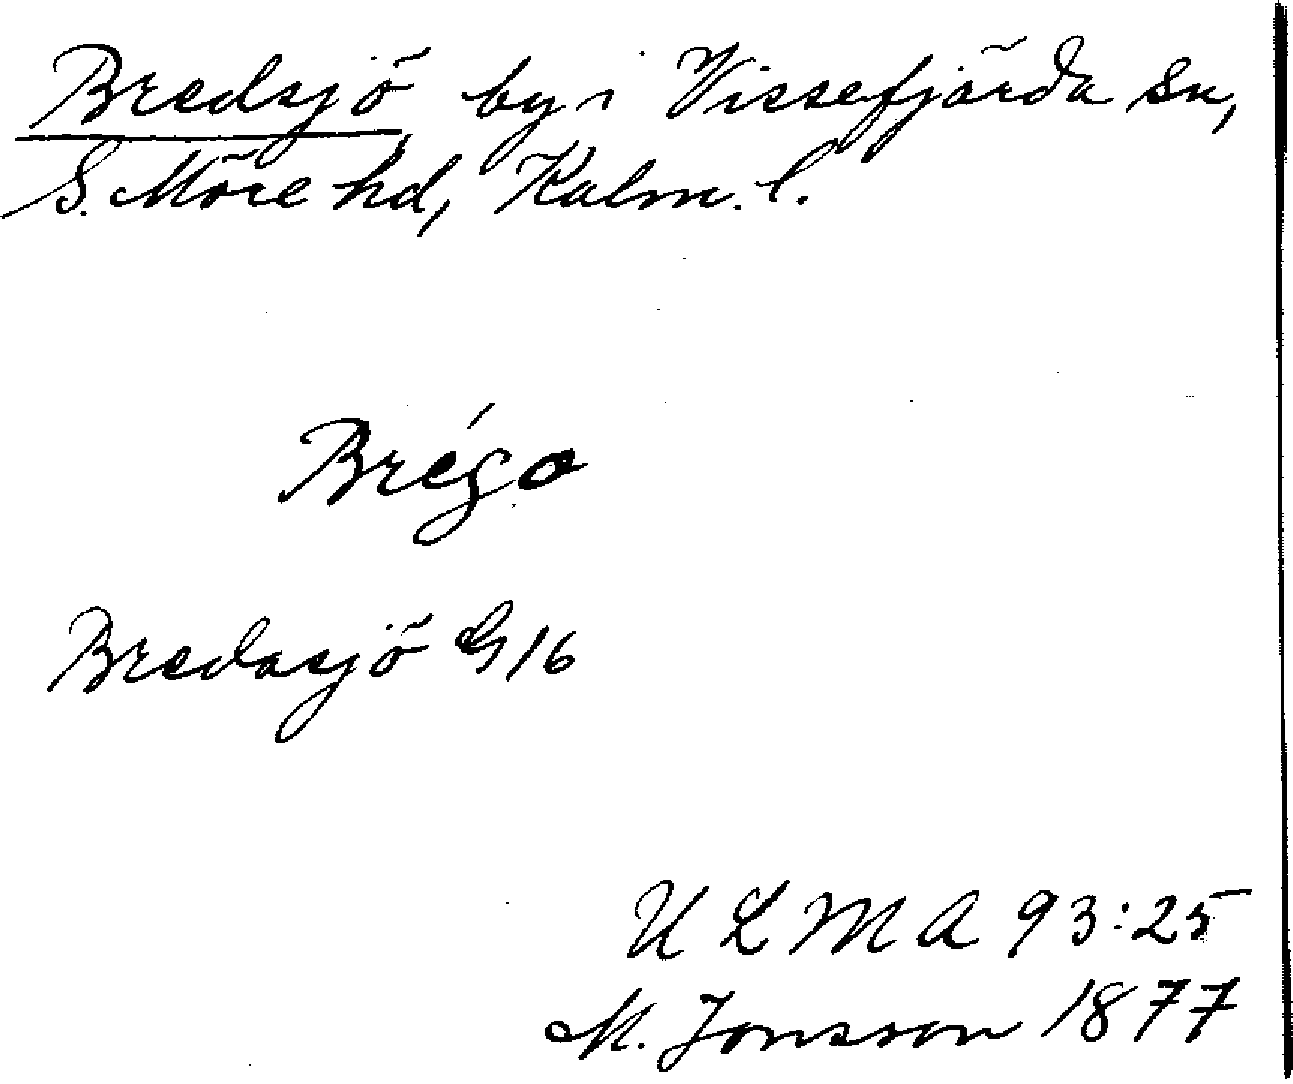 Bredsjö by i Vissefjärda sn,
S. Möre hd, Kalm. l.
Brégo
Bredasjö G 16
ULMA 93:25
M. Jonsson 1877